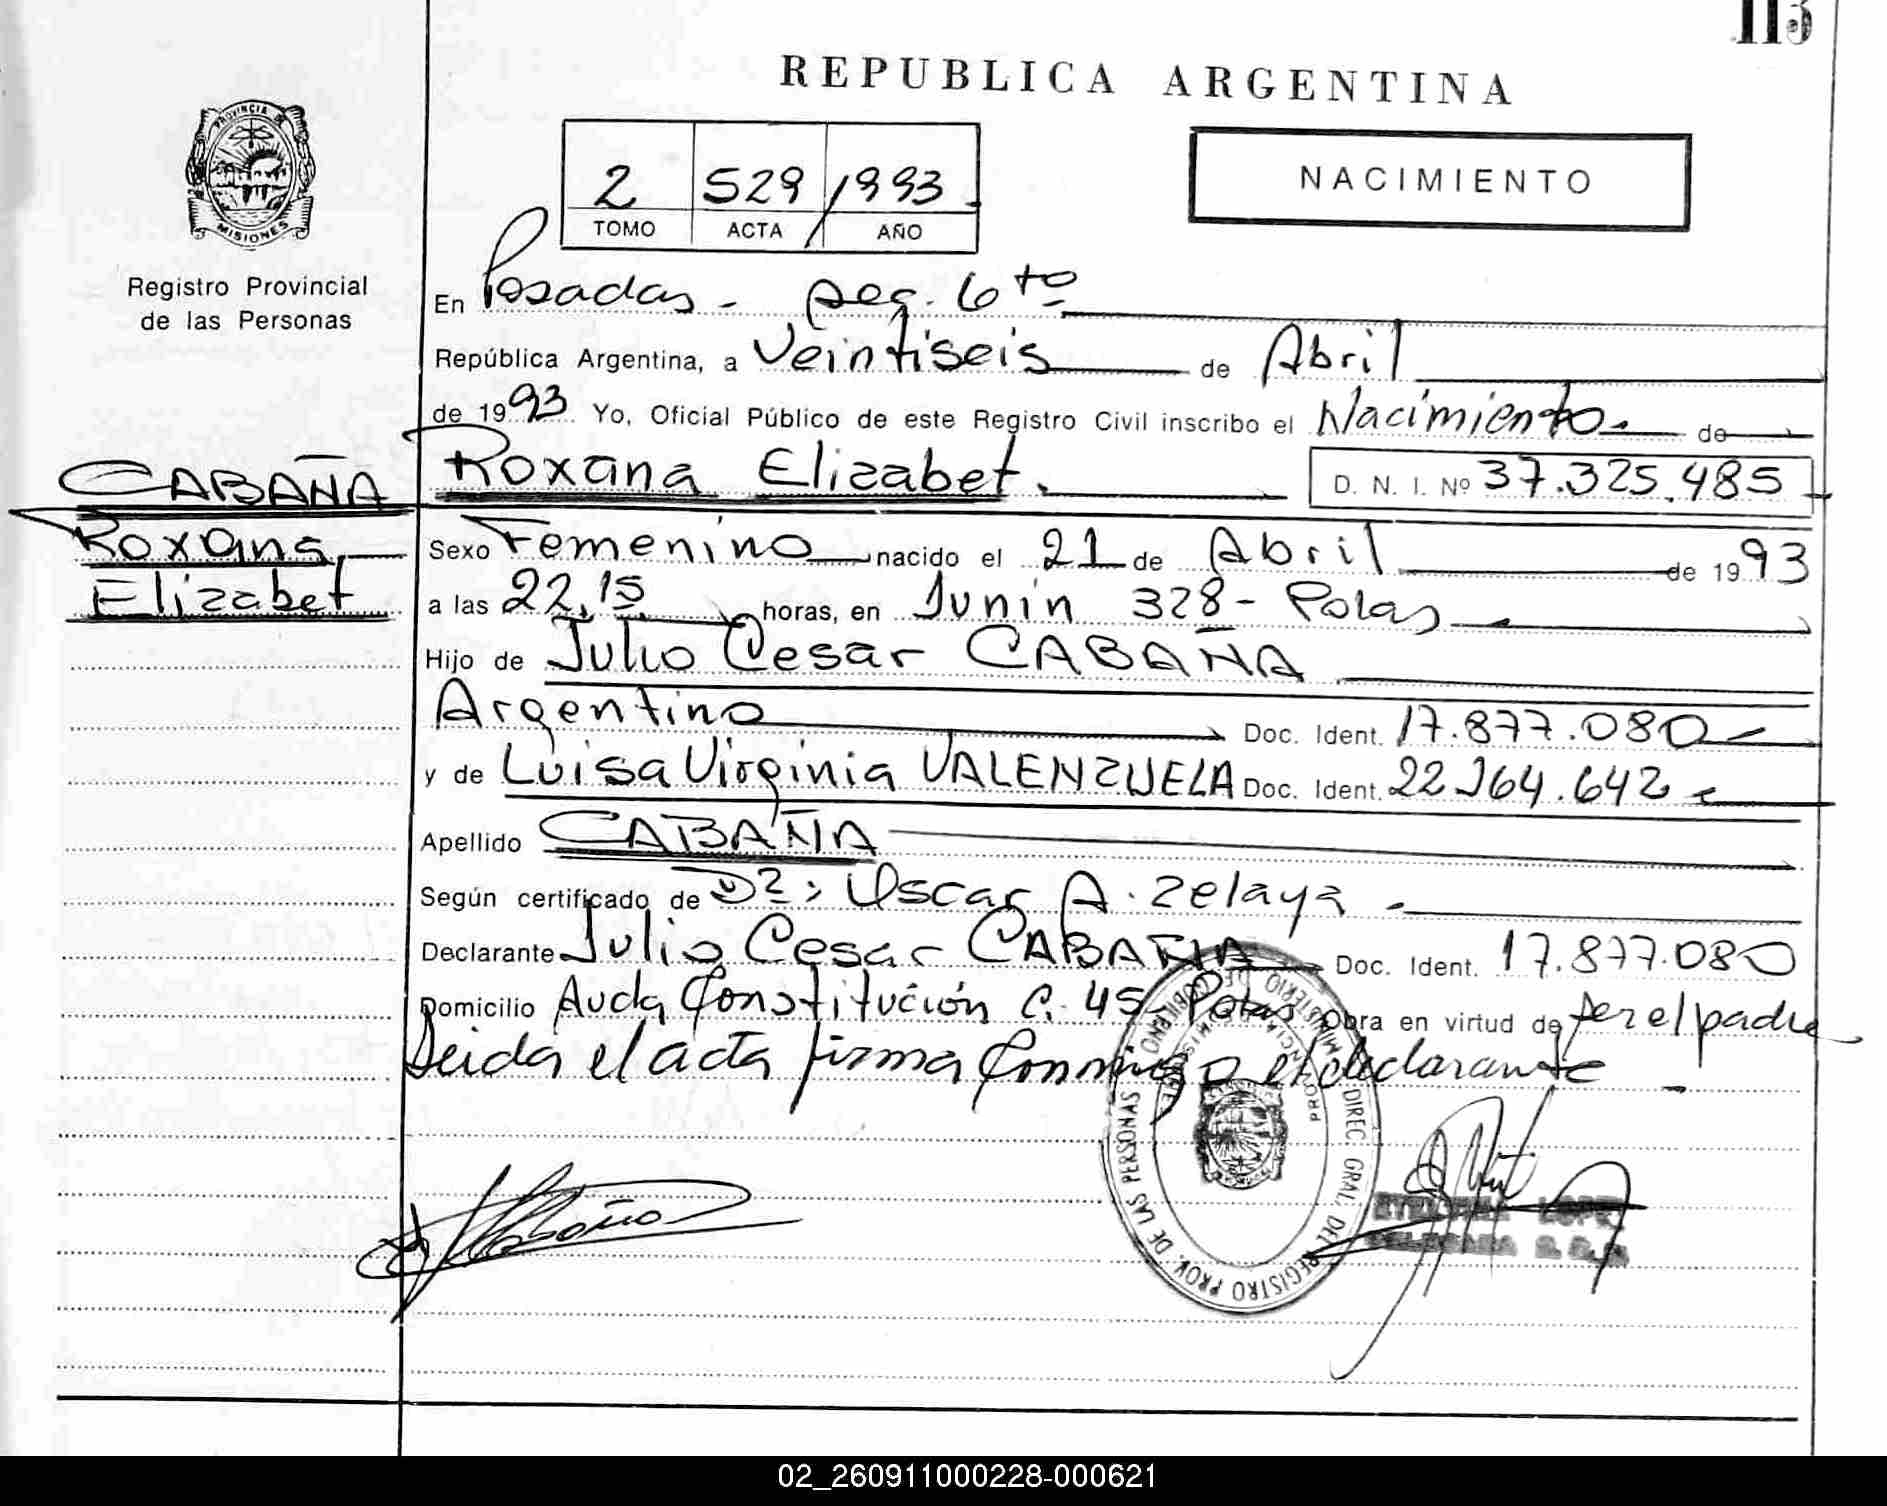 113
REPUBLICA ARGENTINA
PROVINCIA DE
MISIONES
Registro Provincial
de las Personas
2 529 1993
TOMO ACTA AÑO
NACIMIENTO
En Posadas - seg. 6to
República Argentina, a Veintiseis de Abril
de 1993 Yo, Oficial Público de este Registro Civil inscribo el Nacimiento de
CABAÑA
Roxana
Elizabet
Roxana Elizabet. D. N. I. Nº 37.325.485
Sexo Femenino nacido el 21 de Abril de 1993
a las 22,15 horas, en Junin 328 - Pdas
Hijo de Julio Cesar CABAÑA
Argentino Doc. Ident. 17.877.080
y de Luisa Virginia VALENZUELA Doc. Ident. 22.964.642
Apellido CABAÑA
Según certificado de Dr. Oscar A. Zelaya
Declarante Julio Cesar CABAÑA Doc. Ident. 17.877.080
Domicilio Avda Constitución C. 45 Pdas Obra en virtud de ser el padre
Leida el acta firma conmigo el declarante
DIREC. GRAL. DEL REGISTRO PROV. DE LAS PERSONAS
02_260911000228-000621